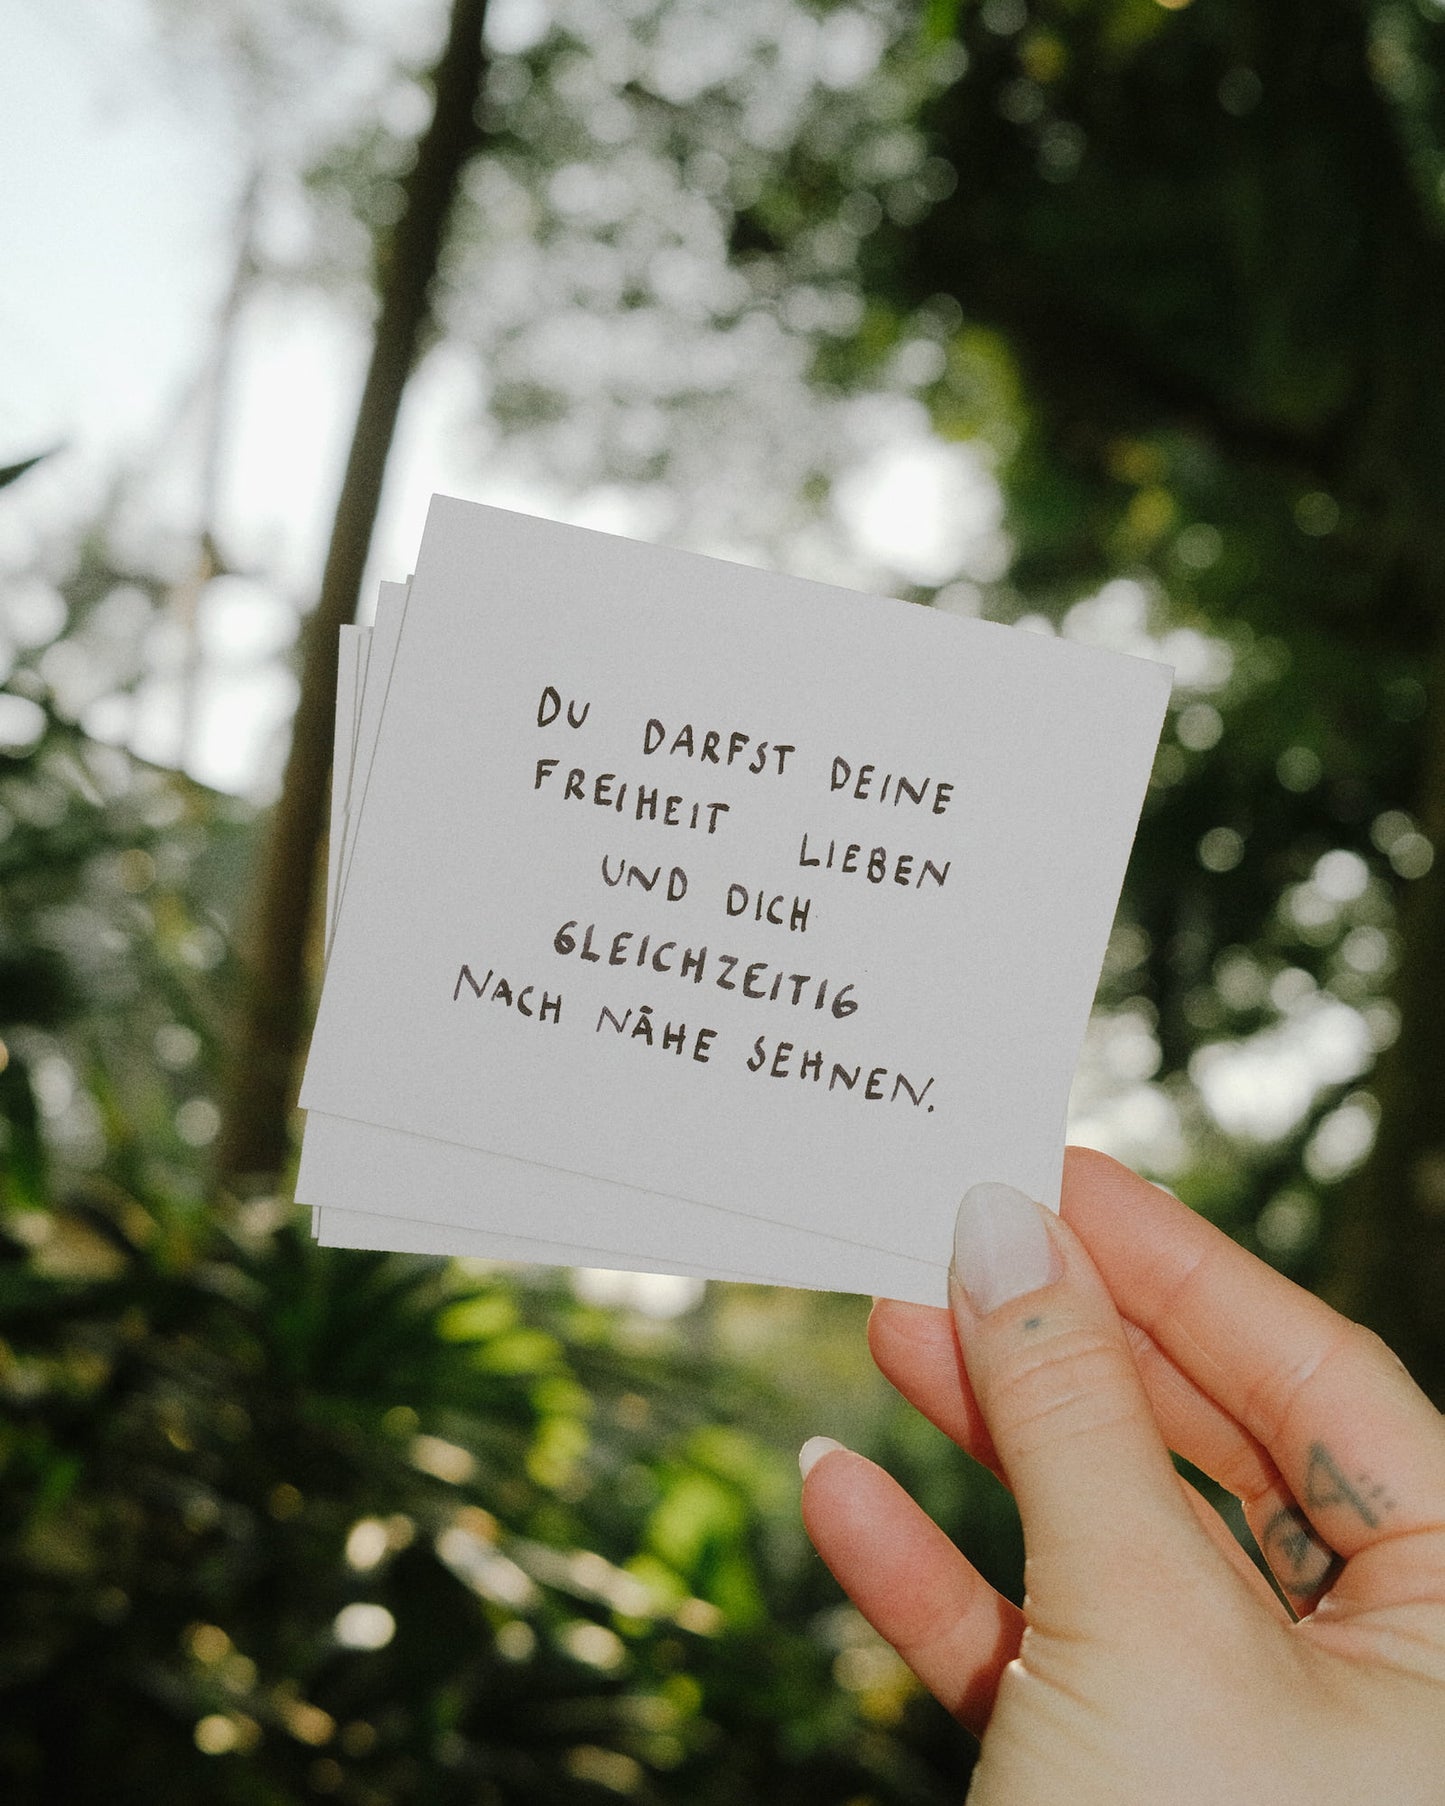 DU DARFST DEINE
FREIHEIT LIEBEN
UND DICH
GLEICHZEITIG
NACH NÄHE SEHNEN.